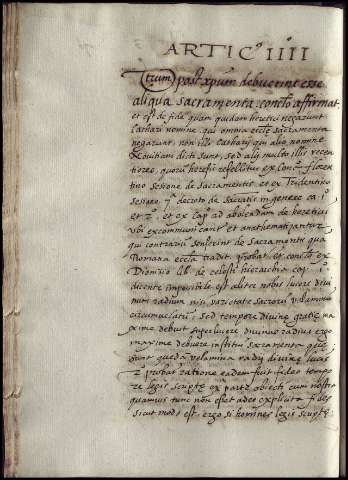 ARTICº IIII
Vtrum post xpum debuerint esse
aliqua sacramenta. conclo affirmat.
et est de fide quam quidam heretici negarunt
Cathari nomine, qui omnia eccle sacramenta
negarunt. non illi Catharj qui alio nomine
Nouitiani dicti sunt, sed alij multo illis recen
tiores, quoru heresis refellitur ex Conº floren
tino sesione de Sacramentis. et ex Tridentino
sesione 7ª decreto de Sacratis in genere ca 1º
et 2º. et ex capº ad abolendam de hereticis
vbi excommunicantur et anathematizantur
qui contrarium senserint de Sacramentis qua
Romana ecclª tradit. probat. et conclo ex
Dionisio lib. de celesti hierarchia cap. 1º
dicente impossibile est aliter nobis lucere diui
num radium nisi varietate sacrorū velaminū
circumuelatū, sed tempore diuine gratie ma
xime debuit superlucere diuinus radius ergo
maxime debuere institui sacramenta que
sunt quedā velamina radij diuine lucis
2º probat. ratione eadem fuit fides tempo
re legis scripte ex parte obiecti cum nostra
quamuis tunc non esset adeo explicita fides
sicut modo est. ergo si homines legis scripte